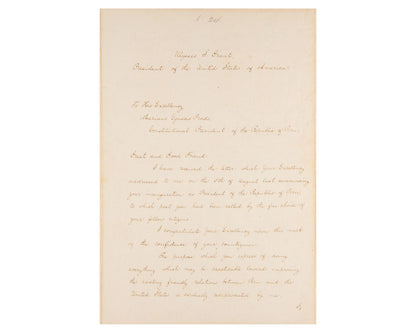 Ulysses S. Grant,
President of the United States of America.
To His Excellency
Mariano Ignacio Prado,
Constitutional President of the Republic of Peru.
Great and Good Friend:
I have received the letter which Your Excellency
addressed to me on the of August last announcing
your inauguration as President of the Republic of Peru,
to which post you had been called by the free choice of
your fellow citizens.
I congratulate Your Excellency upon this mark
of the confidence of your countrymen.
The purpose which you express of doing
everything which may be practicable towards improving
the existing friendly relations between Peru and the
United States is cordially reciprocated by me.